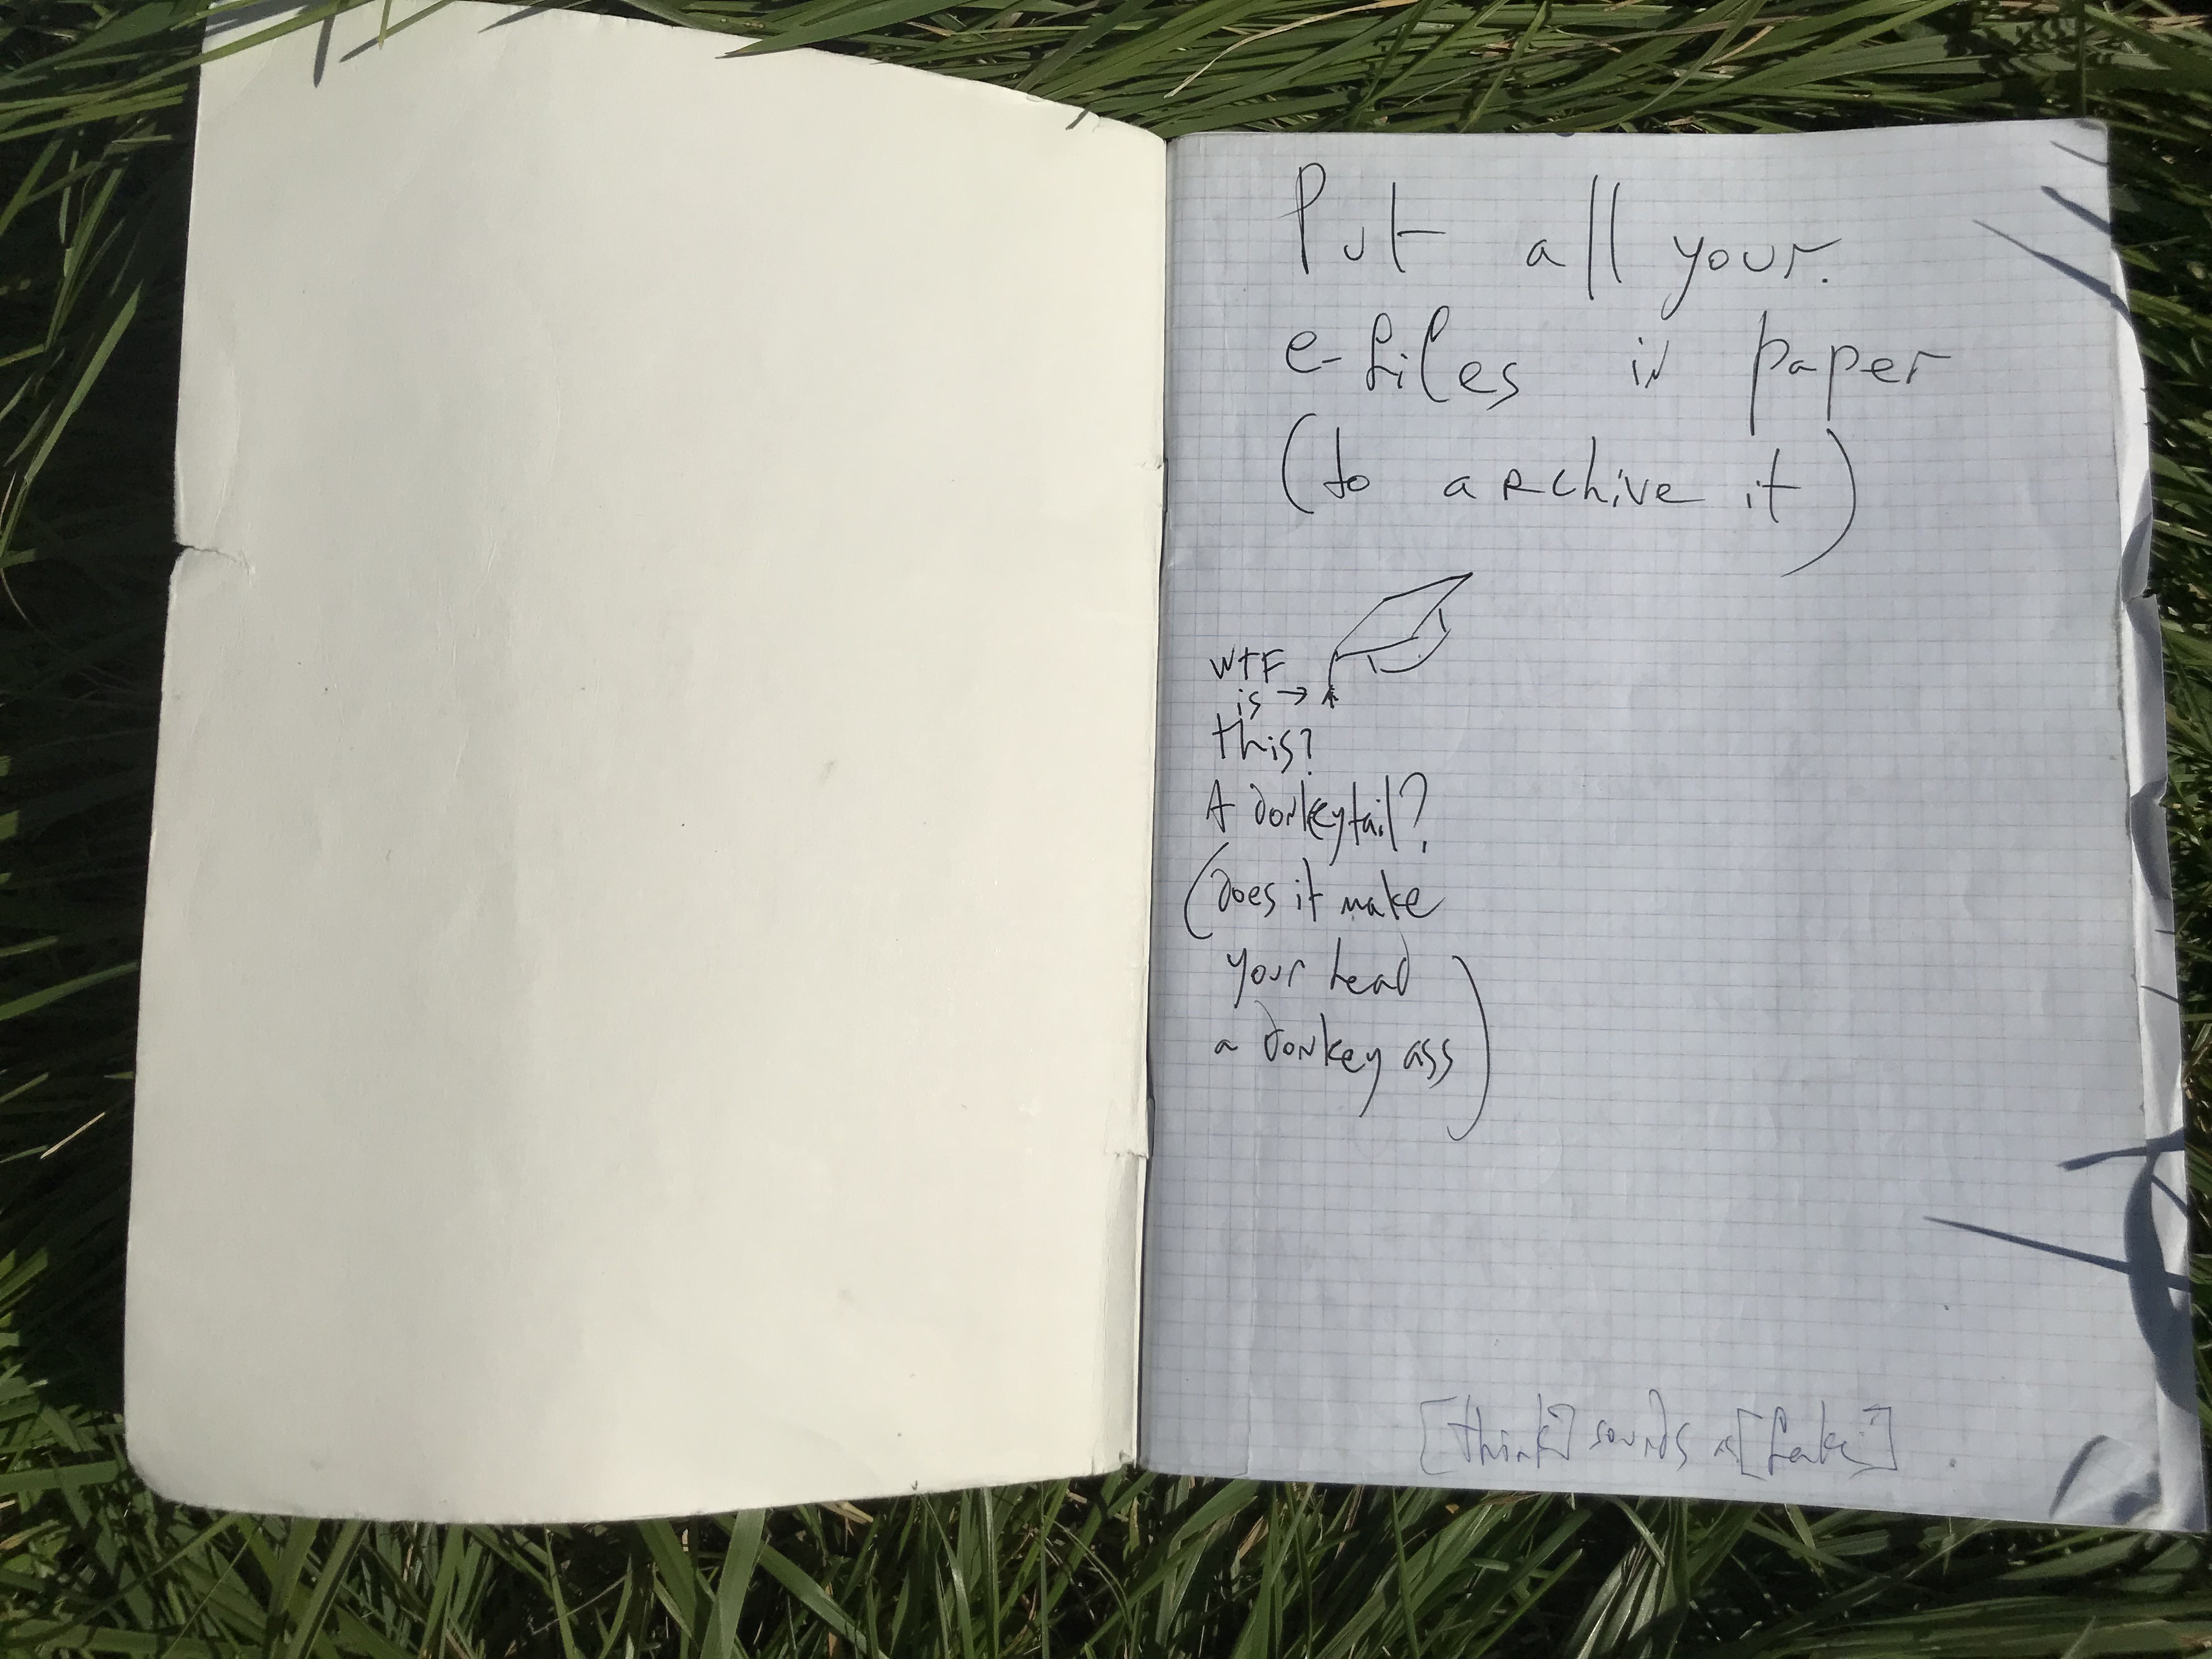 Put all your
e-files in paper
(to archive it)
WTF
is →
this?
A donkeytail?
(Does it make
your head
a donkey ass)
sounds as